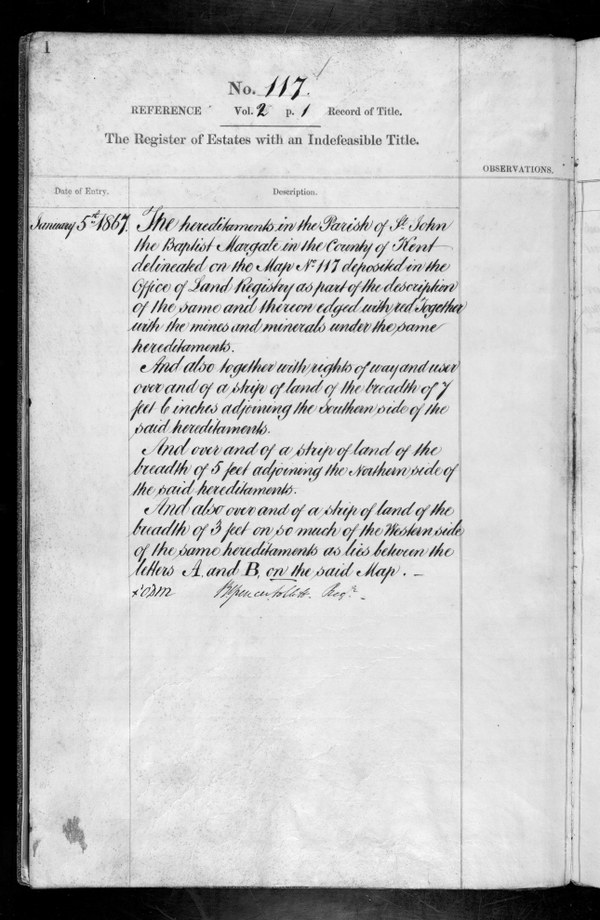 1
No. 117.
REFERENCE Vol. 2 p. 1 Record of Title.
The Register of Estates with an Indefeasible Title.
OBSERVATIONS.
Date of Entry. Description.
January 5th 1867. The hereditaments in the Parish of St. John
the Baptist Margate in the County of Kent
delineated on the Map No 117 deposited in the
Office of Land Registry as part of the description
of the same and thereon edged with red Together
with the mines and minerals under the same
hereditaments.
And also together with rights of way and user
over and of a strip of land of the breadth of 7
feet 6 inches adjoining the Southern side of the
said hereditaments.
And over and of a strip of land of the
breadth of 5 feet adjoining the Northern side of
the said hereditaments.
And also over and of a strip of land of the
breadth of 3 feet on so much of the Western side
of the same hereditaments as lies between the
letters A. and B. on the said Map. —
Regr.